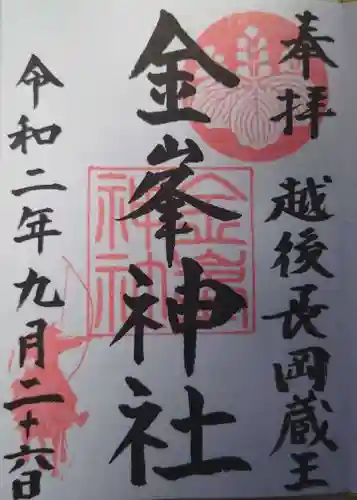 奉拝　越後長岡蔵王
金峯神社
令和二年九月二十六日
金峯
神社